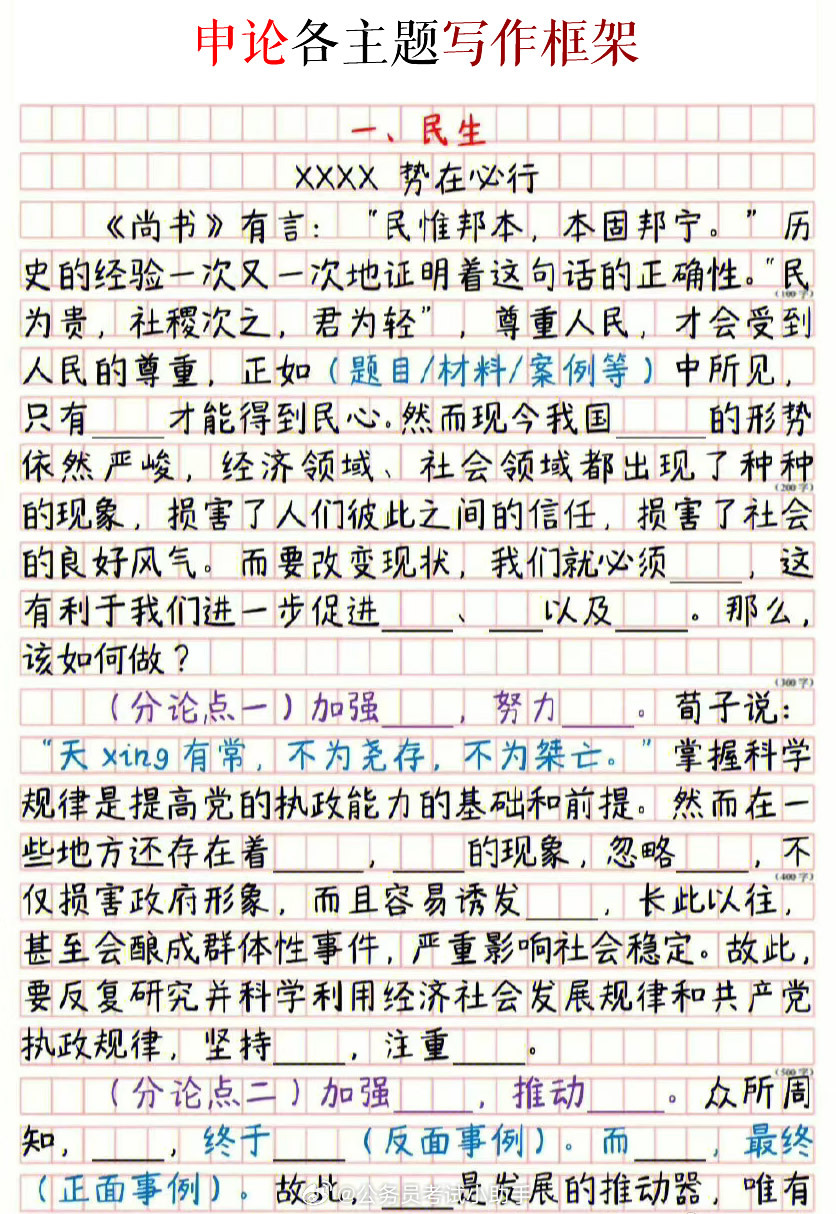 申论各主题写作框架
一、民生
XXXX 势在必行
《尚书》有言：“民惟邦本，本固邦宁。”历
史的经验一次又一次地证明着这句话的正确性。“民
(100字)
为贵，社稷次之，君为轻”，尊重人民，才会受到
人民的尊重，正如（题目/材料/案例等）中所见，
只有____才能得到民心。然而现今我国____的形势
依然严峻，经济领域、社会领域都出现了种种
(200字)
的现象，损害了人们彼此之间的信任，损害了社会
的良好风气。而要改变现状，我们就必须____，这
有利于我们进一步促进____、____以及____。那么，
该如何做？
(300字)
（分论点一）加强____，努力____。荀子说：
“天xing有常，不为尧存，不为桀亡。”掌握科学
规律是提高党的执政能力的基础和前提。然而在一
些地方还存在着____，____的现象，忽略____，不
(400字)
仅损害政府形象，而且容易诱发____，长此以往，
甚至会酿成群体性事件，严重影响社会稳定。故此，
要反复研究并科学利用经济社会发展规律和共产党
执政规律，坚持____，注重____。
(500字)
（分论点二）加强____，推动____。众所周
知，____，终于____（反面事例）。而____，最终
（正面事例）。故此，____是发展的推动器，唯有
@公务员考试小助手